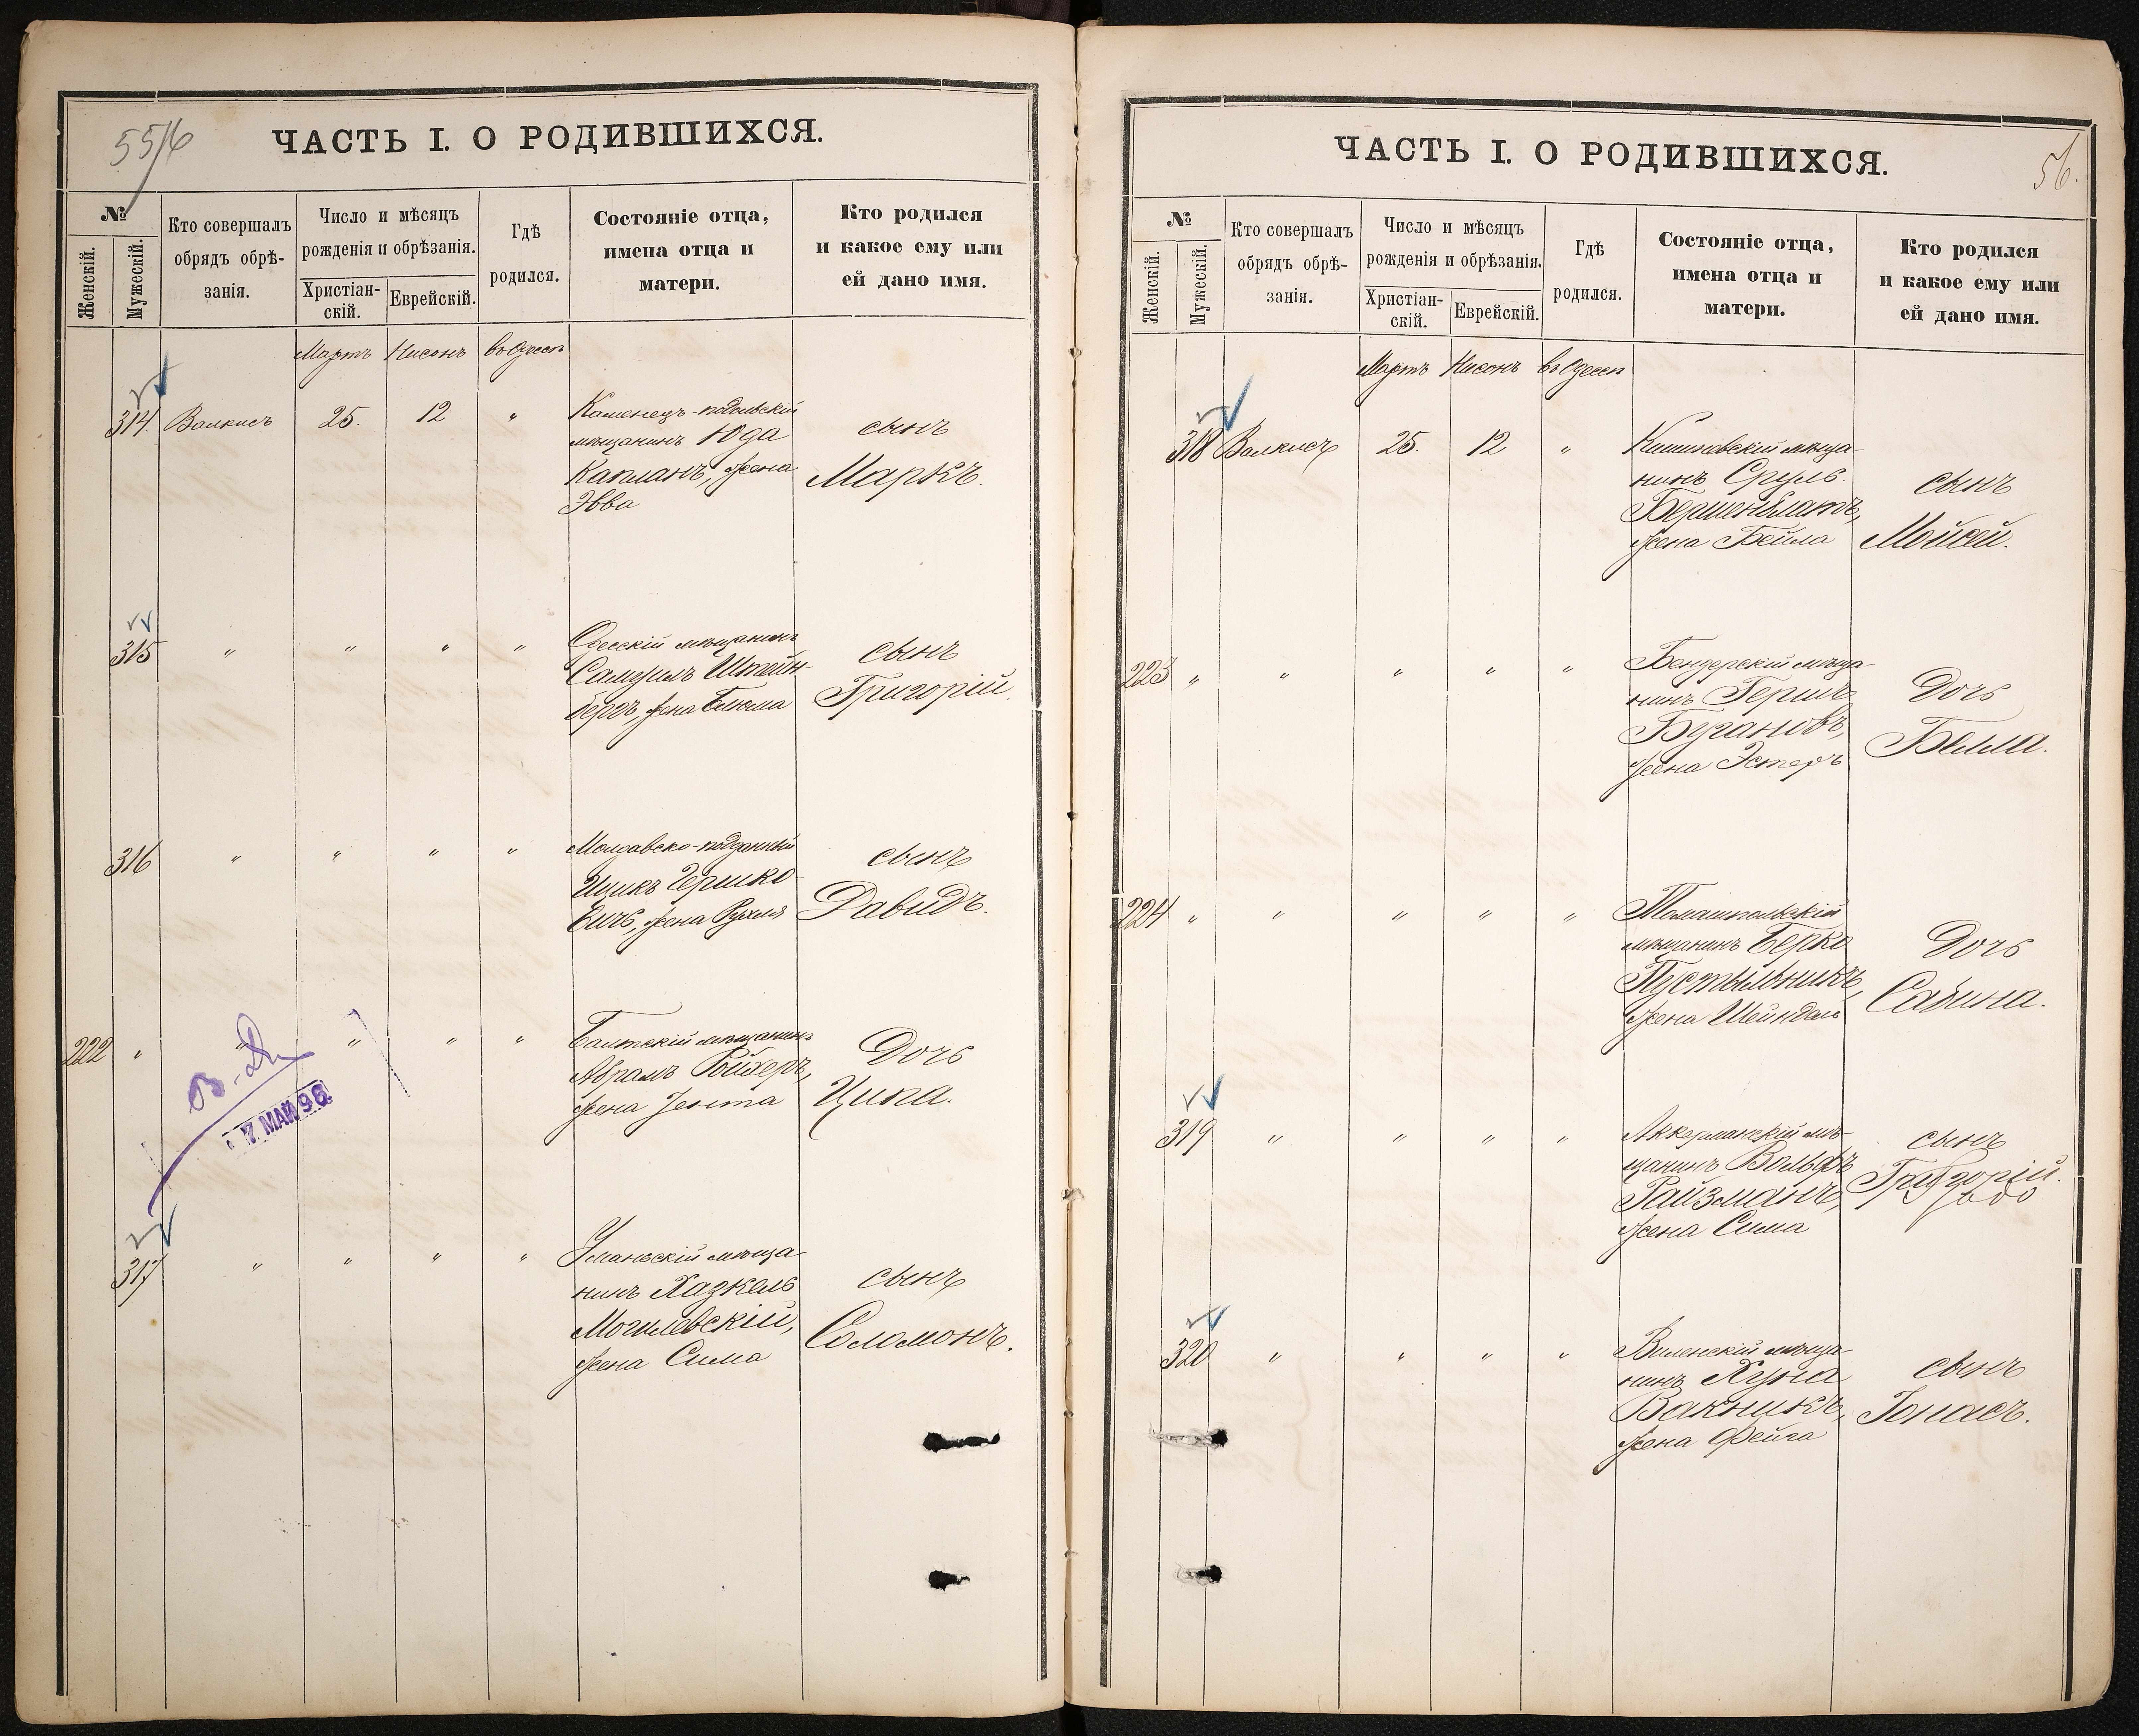 55/6
ЧАСТЬ I. О РОДИВШИХСЯ.
№
Женскій.
Мужескій.
Кто совершалъ
обрядъ обрѣ-
занія.
Число и мѣсяцъ
рожденія и обрѣзанія.
Христіан-
скій.
Еврейскій.
Гдѣ
родился.
Состояніе отца,
имена отца и
матери.
Кто родился
и какое ему или
ей дано имя.
Мартъ Нисонъ въ Одессѣ
314. Валкисъ 25. 12 "
Каменецъ-подольскій
мѣщанинъ Юда
Капланъ, жена
Эвва
сынъ
Маркъ.
315 " " " "
Одесскій мѣщанинъ
Самуилъ Штейн-
бергъ, жена Блюма
сынъ
Григорій.
316 " " " "
Молдавско-подданный
Ицикъ Гершко-
вичъ, жена Рухля
сынъ
Давидъ.
222 " " " " "
Балтскій мѣщанинъ
Абрамъ Ройхеръ,
жена Зента
Дочь
Ципа.
7 МАЙ 96
317 " " " "
Уманьскій мѣща-
нинъ Хазкель
Могилевскій,
жена Сима
сынъ
Соломонъ.
56.
ЧАСТЬ I. О РОДИВШИХСЯ.
№
Женскій.
Мужескій.
Кто совершалъ
обрядъ обрѣ-
занія.
Число и мѣсяцъ
рожденія и обрѣзанія.
Христіан-
скій.
Еврейскій.
Гдѣ
родился.
Состояніе отца,
имена отца и
матери.
Кто родился
и какое ему или
ей дано имя.
Мартъ Нисонъ въ Одессѣ
318 Валкисъ 25. 12 "
Кишиневскій мѣща-
нинъ Сруль
Берменблатъ,
жена Бейла
сынъ
Мойсей.
223 " " " " "
Бендерскій мѣща-
нинъ Гершъ
Бугановъ,
жена Эстеръ
Дочь
Белла.
224 " " " " "
Томашпольскій
мѣщанинъ Берко
Пустыльникъ,
жена Шейндель
Дочь
Сабина.
319 " " " "
Аккерманскій мѣ-
щанинъ Вольфъ
Райзманъ,
жена Сима
сынъ
Григорій.
320 " " " "
Виленскій мѣща-
нинъ Хуна
Вакникъ,
жена Фейга
сынъ
Іонасъ.